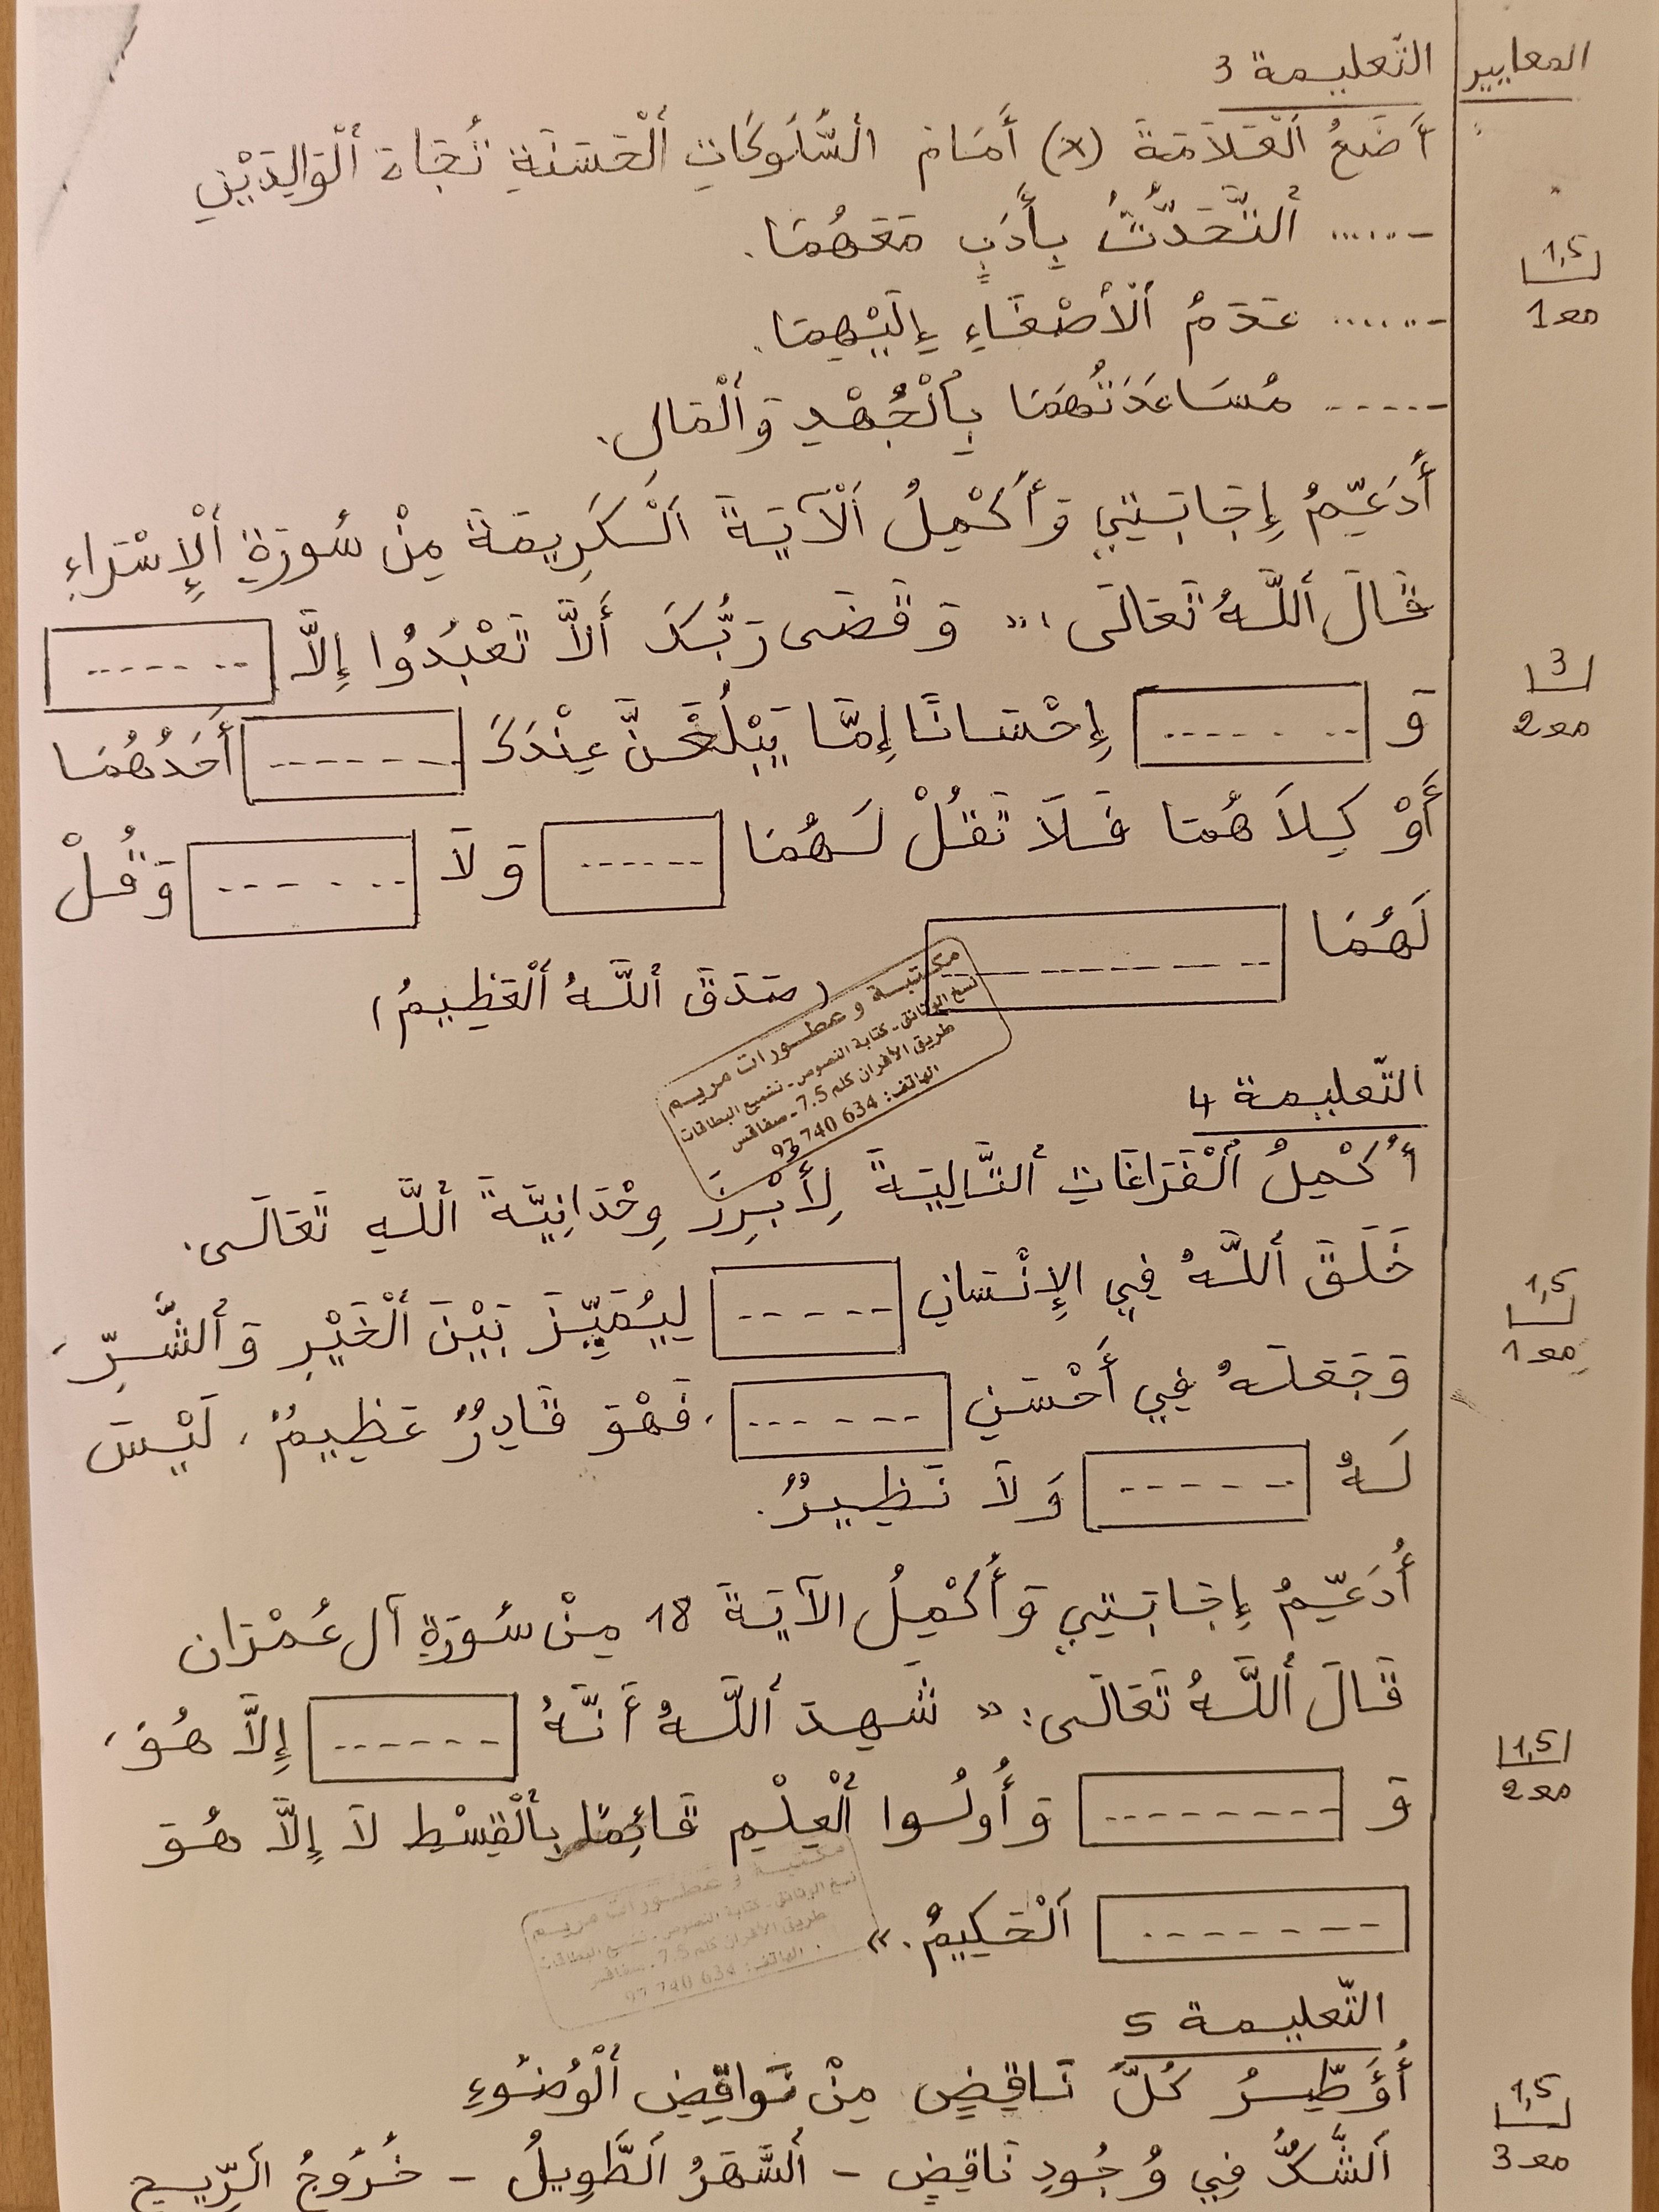 المعايير
التّعليمة 3
أَضَعُ اَلْعَلاَمَةَ (x) أَمَامَ السُّلُوكَاتِ اَلْحَسَنَةِ تُجَاهَ اَلْوَالِدَيْنِ
-...... اَلتَّحَدُّثُ بِأَدَبٍ مَعَهُمَا.
1,5
مع1
-...... عَدَمُ اَلْأصْغَاءِ إِلَيْهِمَا.
-..... مُسَاعَدَتُهُمَا بِالْجُهْدِ وَاَلْمَالِ.
أُدَعِّمُ إِجَابَتِي وَأُكْمِلُ اَلْآيَةَ اَلْكَرِيمَةَ مِنْ سُورَةِ اَلْإِسْرَاءِ
قَالَ اَللَّهُ تَعَالَى: « وَ قَضَى رَبُّكَ أَلاَّ تَعْبُدُوا إِلاَّ .......
3
مع2
وَ ....... إِحْسَانًا إِمَّا يَبْلُغَنَّ عِنْدَكَ ....... أَحَدُهُمَا
أَوْ كِلاَهُمَا فَلاَ تَقُلْ لَهُمَا ...... وَ لاَ ....... وَقُلْ
لَهُمَا ......... (صَدَقَ اَللَّهُ اَلْعَظِيمُ)
مكتبة و عطورات مريم
نسخ الوثائق - كتابة النصوص - تشميع البطاقات
طريق الأفران كلم 7.5 - صفاقس
الهاتف: 634 740 97
التّعليمة 4
أُكْمِلُ اَلْفَرَاغَاتِ اَلتَّالِيَةَ لِأُبْرِزَ وِحْدَانِيَّةَ اَللَّهِ تَعَالَى.
خَلَقَ اَللَّهُ فِي الإِنْسَانِ ..... لِيُمَيِّزَ بَيْنَ اَلْخَيْرِ وَ اَلشَّرِّ،
1,5
مع1
وَجَعَلَهُ فِي أَحْسَنِ ......، فَهْوَ قَادِرٌ عَظِيمٌ، لَيْسَ
لَهُ ...... وَ لاَ نَظِيرٌ.
أُدَعِّمُ إِجَابَتِي وَ أُكْمِلُ الآيَةَ 18 مِنْ سُورَةِ آلِ عُمْرَان
قَالَ اَللَّهُ تَعَالَى: « شَهِدَ اَللَّهُ أَنَّهُ ...... إِلاَّ هُوَ،
1,5
مع2
وَ ........ وَ أُولُوا اَلْعِلْمِ قَائِمًا بِالْقِسْطِ لاَ إِلاَّ هُوَ
....... اَلْحَكِيمُ. »
مكتبة و عطورات مريم
نسخ الوثائق - كتابة النصوص - تشميع البطاقات
طريق الأفران كلم 7.5 - صفاقس
الهاتف: 634 740 97
التّعليمة 5
أُؤَطِّرُ كُلَّ نَاقِضٍ مِنْ نَوَاقِضِ اَلْوُضُوءِ
1,5
مع3
اَلشَّكُّ فِي وُجُودِ نَاقِضٍ - اَلسَّهَرُ اَلطَّوِيلُ - خُرُوجُ اَلرِّيحِ